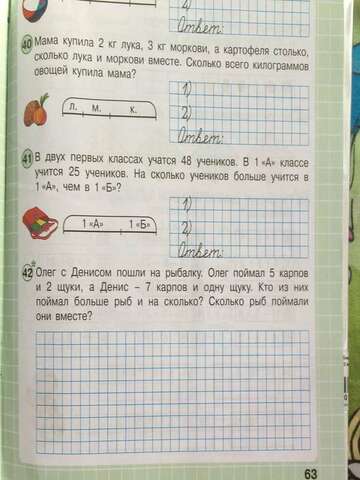 4)
Ответ:
40 Мама купила 2 кг лука, 3 кг моркови, а картофеля столько,
сколько лука и моркови вместе. Сколько всего килограммов
овощей купила мама?
л. м. к.
1)
2)
Ответ:
41 В двух первых классах учатся 48 учеников. В 1 «А» классе
учится 25 учеников. На сколько учеников больше учится в
1 «А», чем в 1 «Б»?
1 «А» 1 «Б»
1)
2)
Ответ:
42* Олег с Денисом пошли на рыбалку. Олег поймал 5 карпов
и 2 щуки, а Денис – 7 карпов и одну щуку. Кто из них
поймал больше рыб и на сколько? Сколько рыб поймали
они вместе?
63